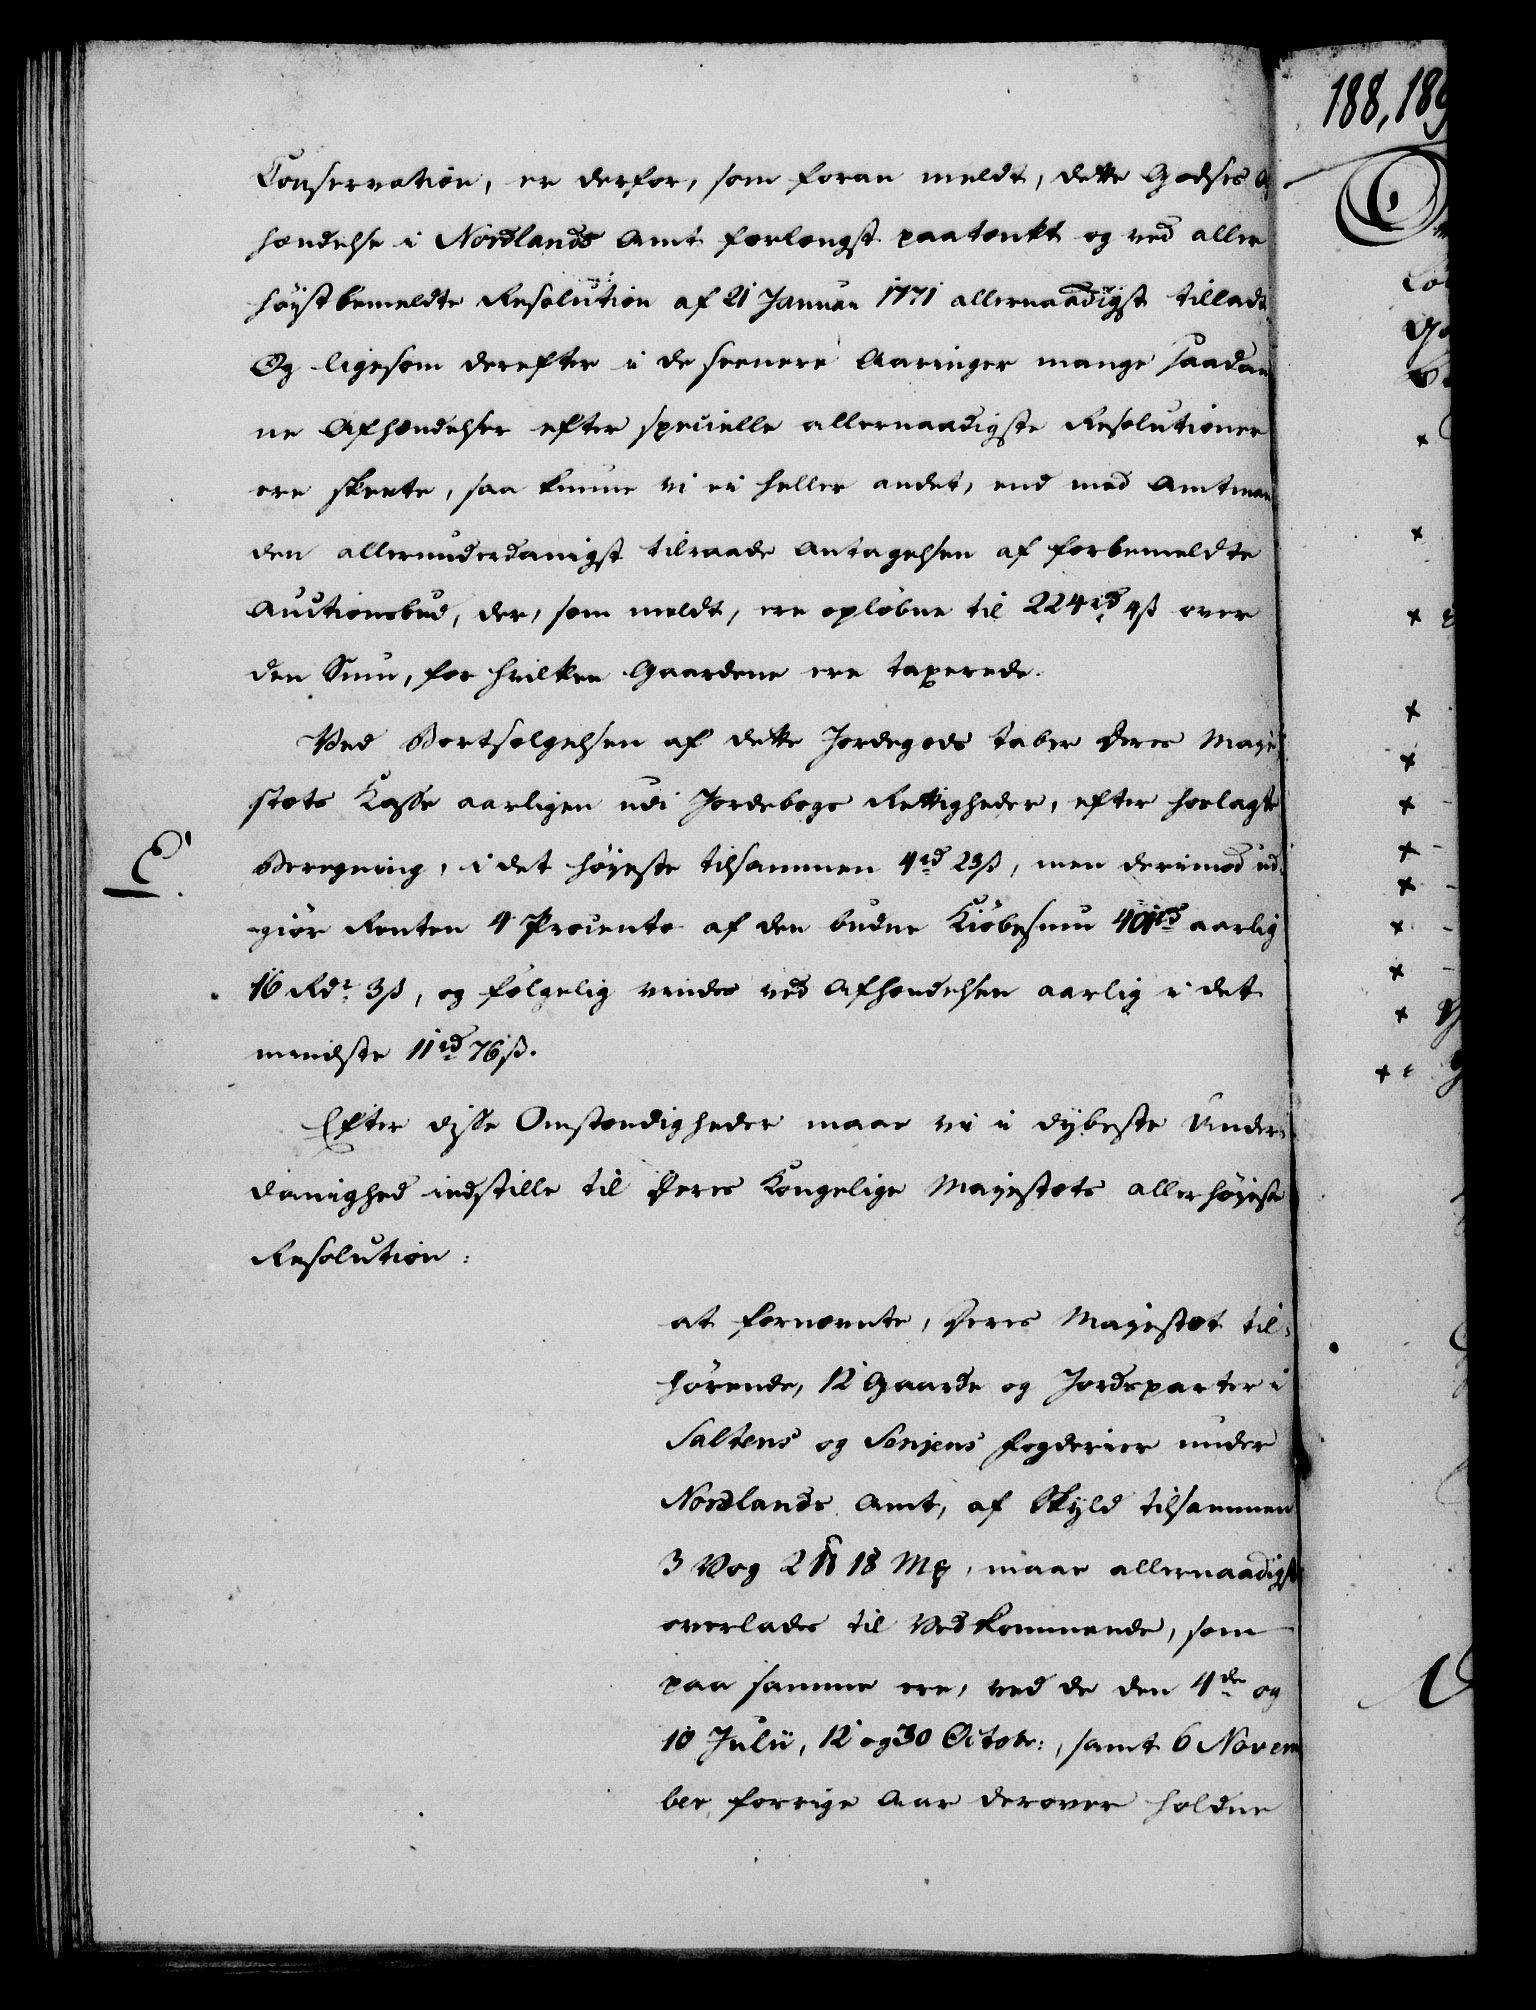 188, 189
Conservation, er derfor, som foran meldt, dette Godses A
hændelse i Nordlands Amt forlængst paatænkt og ved aller
høystbemeldte Resolution af 21 Januar 1771 allernaadigst tilladt.
Og ligesom derefter i de seenere Aaringer mange saadan
ne Afhændelser efter specielle allernaadigste Resolutioner
ere skeete, saa kunne vi ei heller andet, end med Amtman
den allerunderdanigst tilraade Antagelsen af forbemeldte
Auctionsbud, der, som meldt, ere opløbne til 224 rd 4 ß over
den Sum, for hvilken Gaardene ere taxerede.
Ved Bortsælgelsen af dette Jordegods taber Deres Maje
stæts Kasse aarligen udi Jordebogs Rettigheder, efter hoslagte
E. Beregning, i det høyeste tilsammen 4 rd 23 ß, men derimod ud
giør Renten 4 Procento af den budne Kiøbesum 401 rd aarlig
16 Rdr 3 ß, og følgelig vindes ved Afhændelsen aarlig i det
mindste 11 rd 76 ß.
Efter disse Omstændigheder maae vi i dybeste Under
danighed indstille til Deres Kongelige Majestæts allerhøyeste
Resolution:
at fornævnte, Deres Majestæt til,
hørende, 12 Gaarde og Jordeparter i
Saltens og Senjens Fogderier under
Nordlands Amt, af Skyld tilsammen
3 Vog 2 ℔ 18 Mk, maae allernaadigst
overlades til Vedkommende, som
paa samme ere, ved de den 4de og
10 Julii, 12 og 30 Octobr:, samt 6 Novem
ber forrige Aar derover holdne